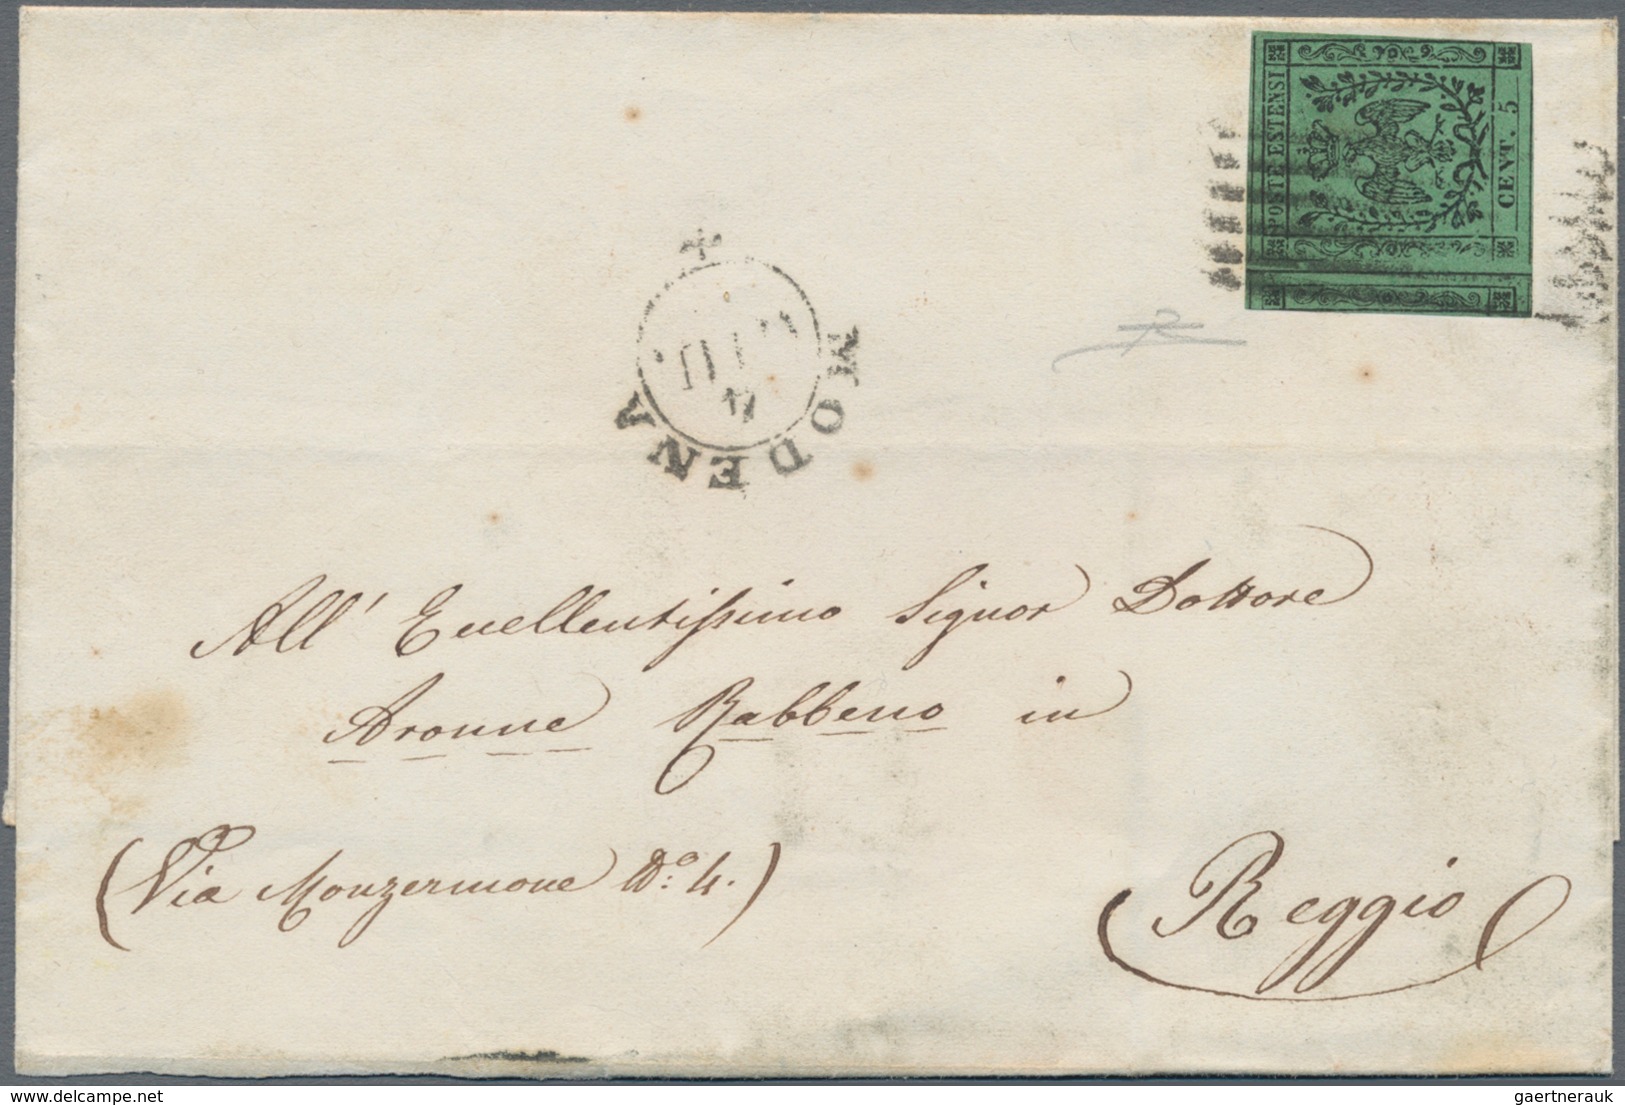 POSTE ESTENSI
CENT. 5
MODENA
4
All' Eccellentissimo Signor Dottore
Aronne Rabbeno in
(Via Monzermone No: 4.)
Reggio
gaertnerauk / delcampe.net